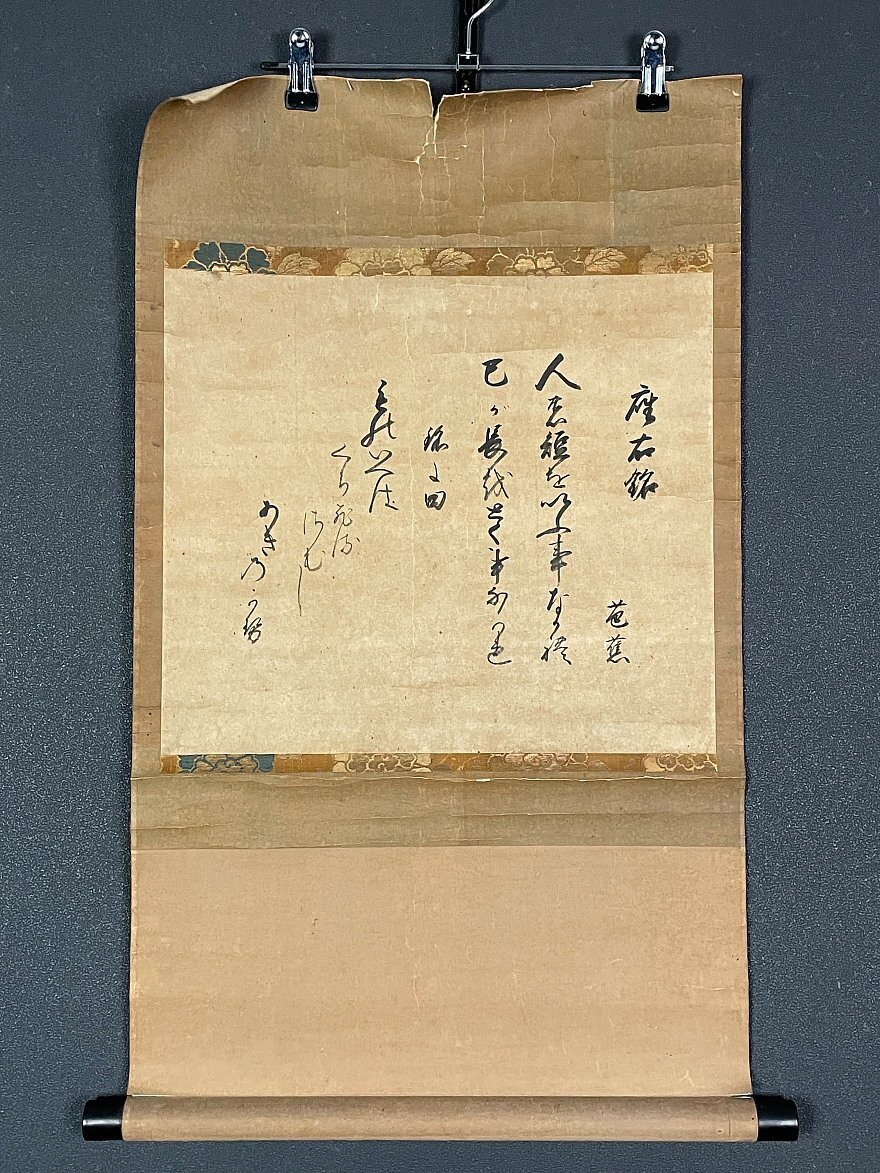 座右銘
芭蕉
人の短をいふ事なかれ
己が長をとく事なかれ
銘に曰
ものいへば
くちびる
さむし
あきのかぜ